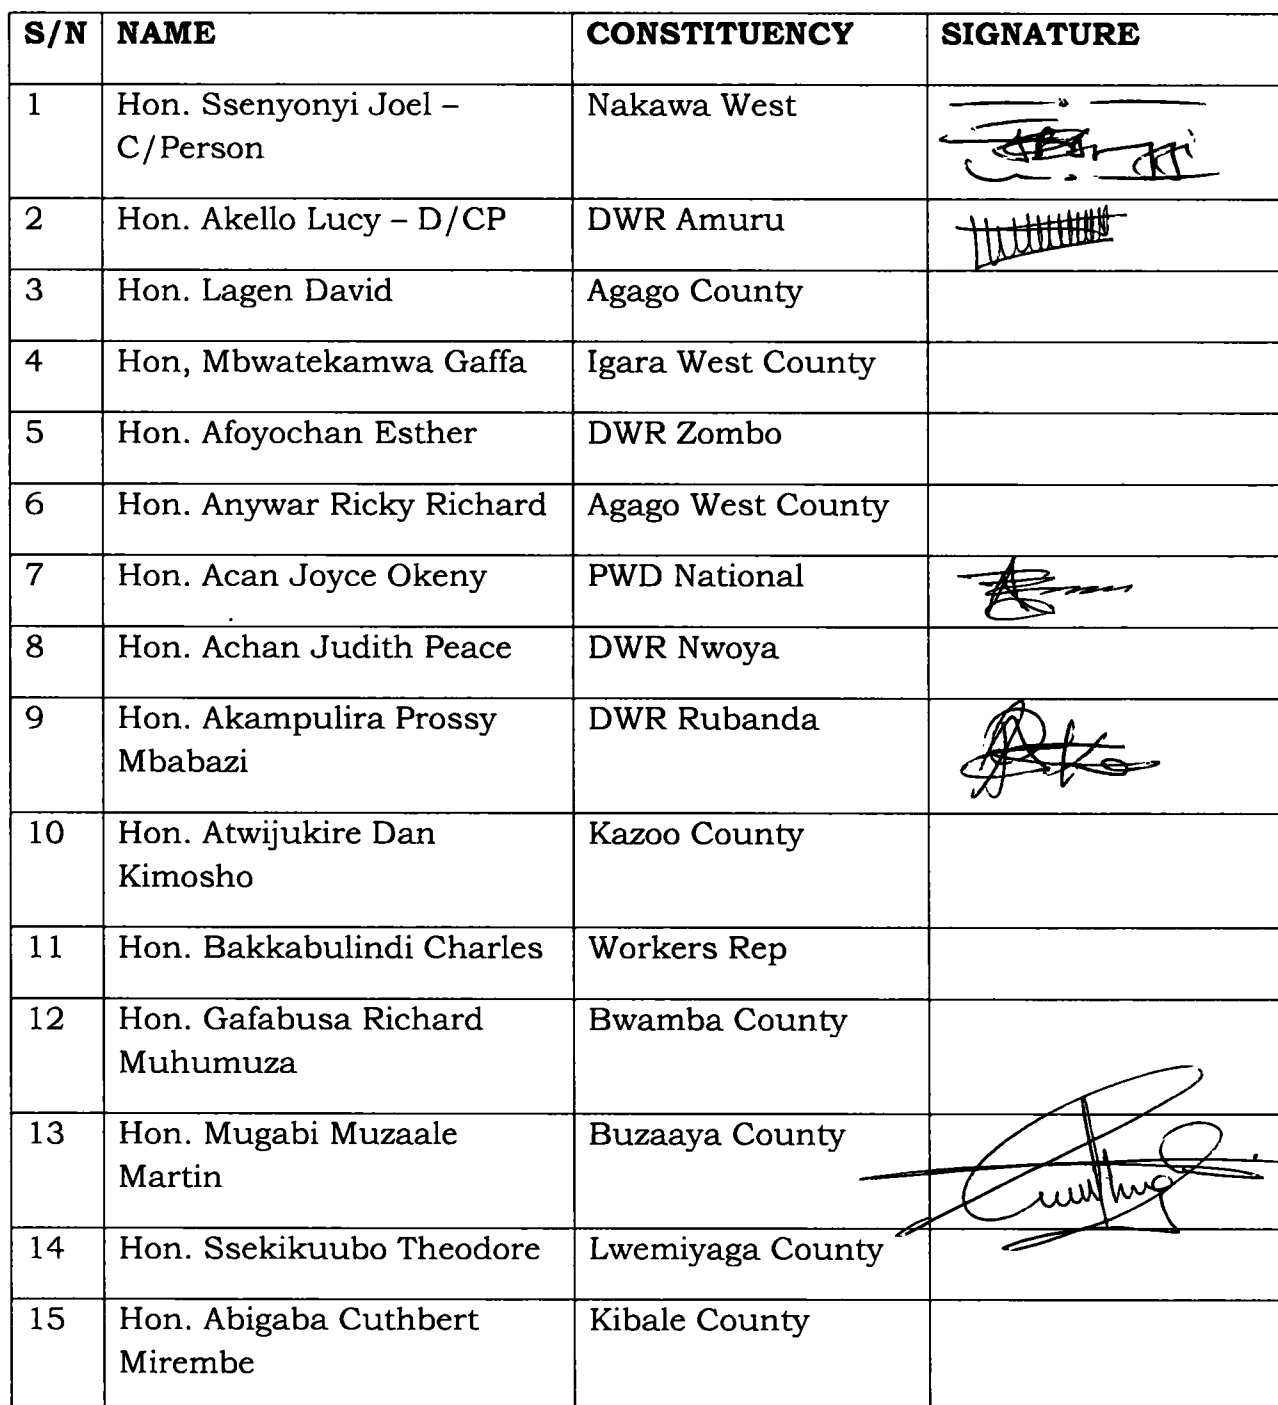 S/N NAME CONSTITUENCY SIGNATURE
1 Hon. Ssenyonyi Joel – Nakawa West
C/Person
2 Hon. Akello Lucy – D/CP DWR Amuru
3 Hon. Lagen David Agago County
4 Hon, Mbwatekamwa Gaffa Igara West County
5 Hon. Afoyochan Esther DWR Zombo
6 Hon. Anywar Ricky Richard Agago West County
7 Hon. Acan Joyce Okeny PWD National
8 Hon. Achan Judith Peace DWR Nwoya
9 Hon. Akampulira Prossy DWR Rubanda
Mbabazi
10 Hon. Atwijukire Dan Kazoo County
Kimosho
11 Hon. Bakkabulindi Charles Workers Rep
12 Hon. Gafabusa Richard Bwamba County
Muhumuza
13 Hon. Mugabi Muzaale Buzaaya County
Martin
14 Hon. Ssekikuubo Theodore Lwemiyaga County
15 Hon. Abigaba Cuthbert Kibale County
Mirembe